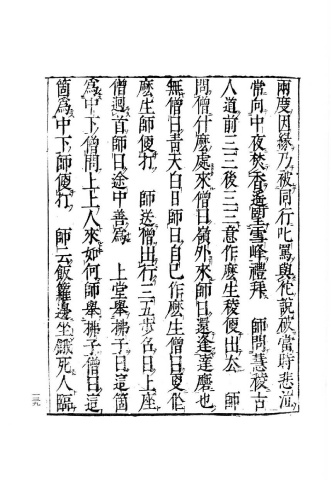 兩度因緣乃被同行叱罵與伱說破當時悲泣
常向中夜焚香遙望雪峰禮拜　師問慧稜古
人道前三三後三三意作麼生稜便出去　師
問僧什麼處來僧曰嶺外來師曰還逢達磨也
無僧曰青天白日師曰自己作麼生僧曰更作
麼生師便打　師送僧出行三五步名曰上座
僧迴首師曰途中善爲　上堂舉拂子曰這箇
爲中下僧問上上人來如何師舉拂子僧曰這
箇爲中下師便打　師云飯籮邊坐餓死人臨
一九